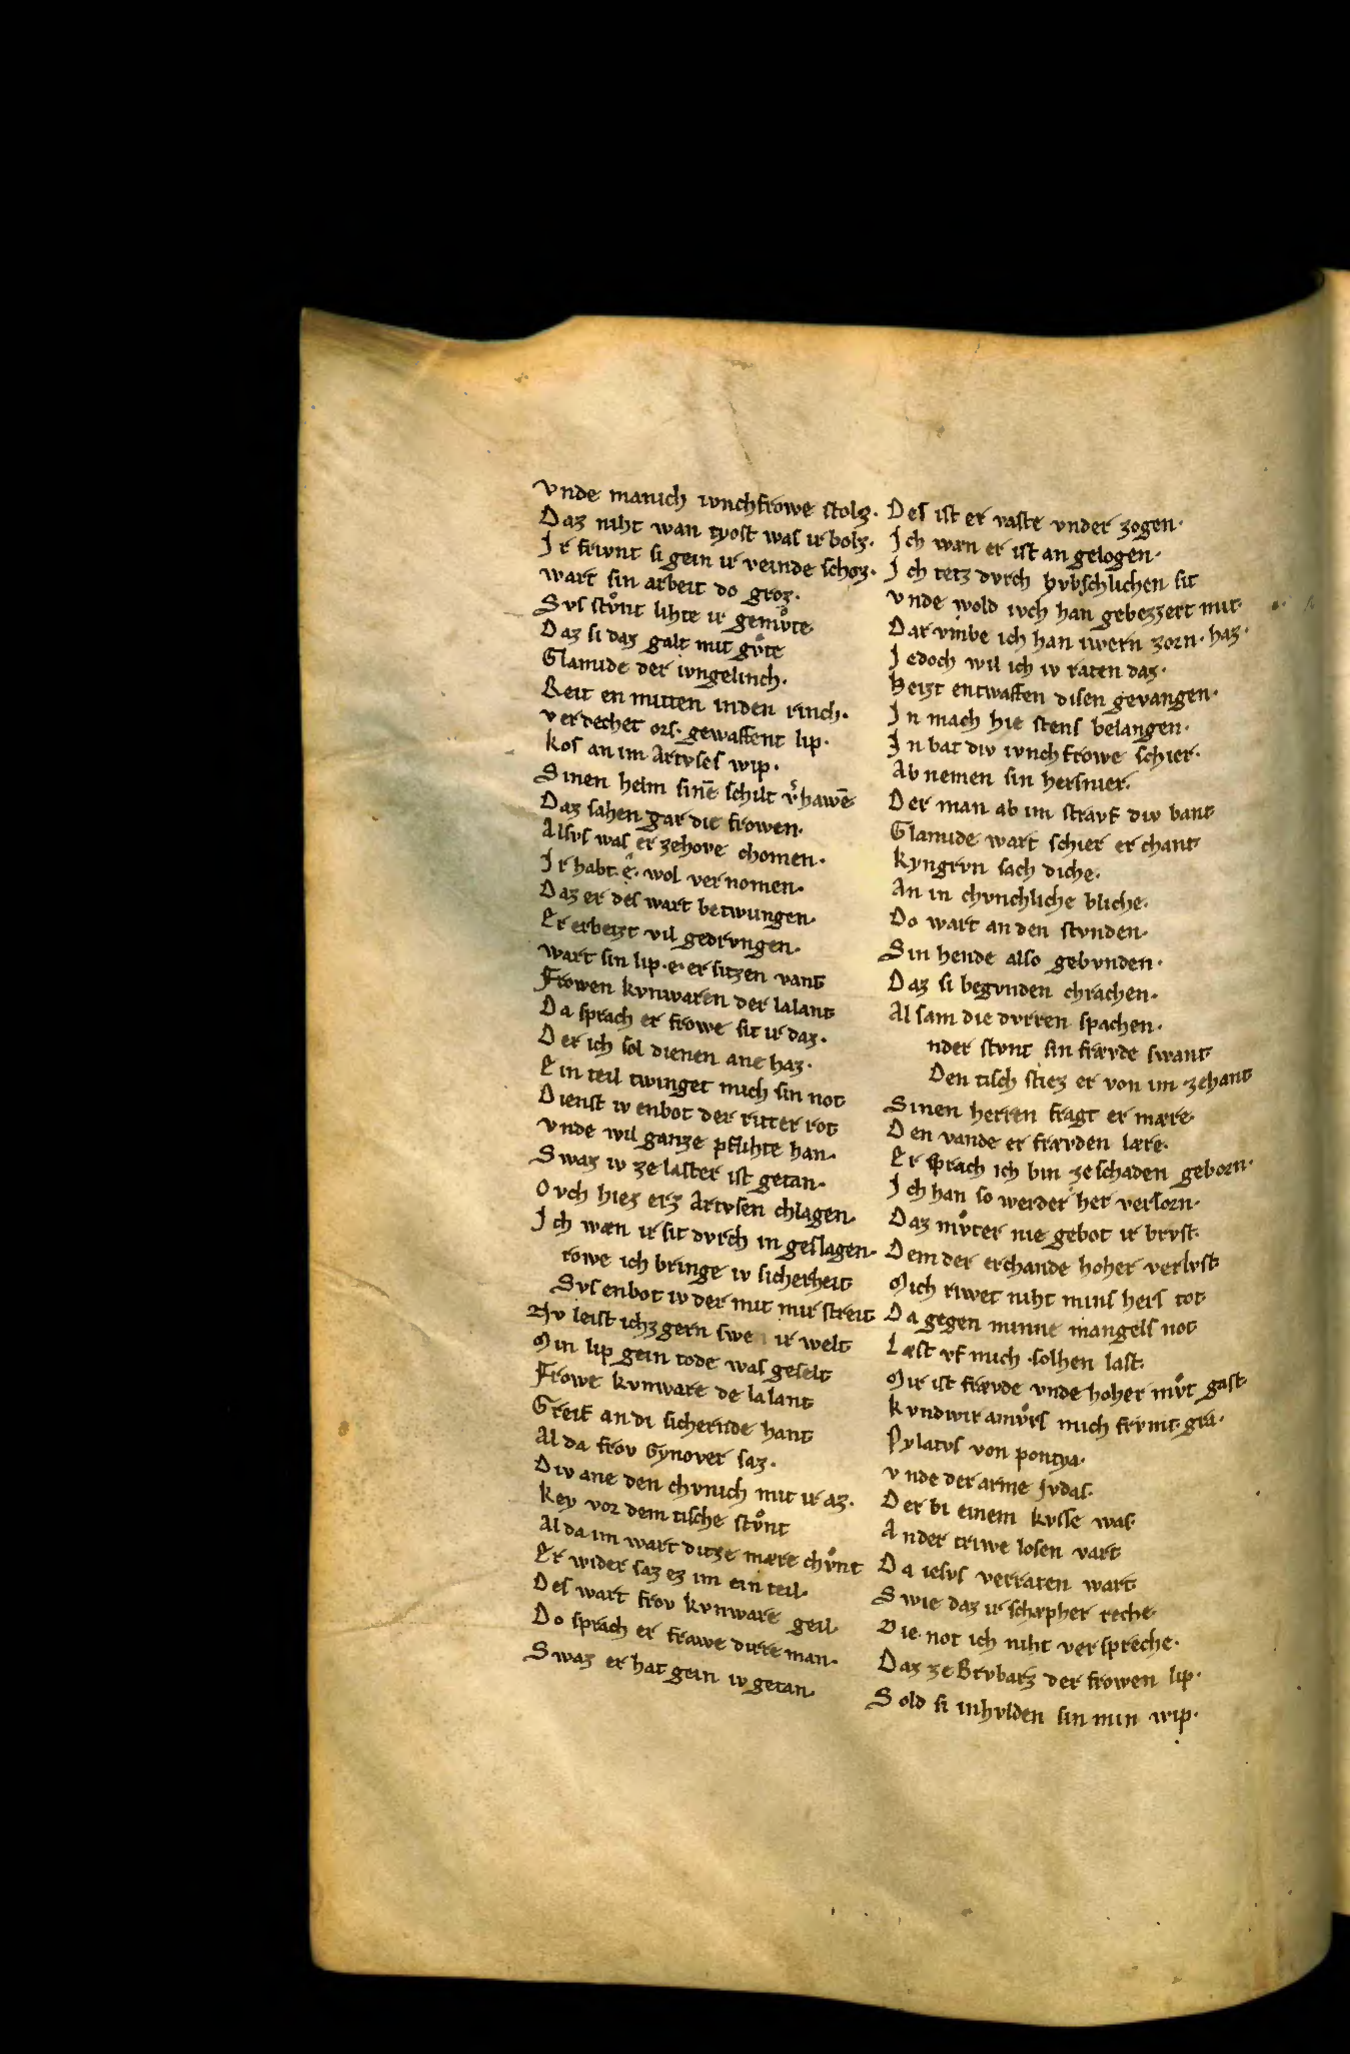 vnde manich ivnchfrowe stolz·
Daz niht wan tyost was ir bolz·
Ir frivnt si gein ir veinde schoz·
wart sin arbeit do groz·
Svs stv̊nt lihte ir gemv̊te·
Daz si daz galt mit gv̊te
Glamide der ivngelinch·
Reit en mitten inden rinch·
verdechet ors· gewaffent lip·
kos an im Artvses wip·
Sinen helm sinē schilt v͛hawē
Daz sahen gar die frowen·
Alsvs was er zehove chomen·
Ir habt ê· wol vernomen·
Daz er des wart betwungen·
Er erbeizt vil gedrvngen·
wart sin lip· e· er sitzen vant
Frowen kvnwaren der lalant
Da sprach er frowe sit ir daz·
Der ich sol dienen ane haz·
Ein teil twinget mich sin not
Dienst iv enbot der ritter rot
vnde wil ganze pflihte han·
Swaz iv ze laster ist getan·
Ovch hiez erz Artvsen chlagen·
Ich wæn ir sit dvrch in geslagen·
rowe ich bringe iv sicherheit
Svs enbot iv der mit mir streit
Nv leist ichz gern swe ir welt
Min lip gein tode was geselt
Frowe kvnware de lalant
Greif an di sichernde hant
Al da frov Gynover saz·
Div ane den chvnich mit ir az·
key vor dem tische stv̊nt
Al da im wart ditze mære chv̊nt
Er wider saz ez im ein teil·
Des wart frov kvnware geil·
Do sprach er frawe dirre man·
Swaz er hat gein iv getan·
Des ist er vaste vnder zogen·
Ich wæn er ist an gelogen·
Ich tetz dvrch hvbschlichen sit
vnde wold ivch han gebezzert mit·
Dar vmbe ich han iwern zorn· haz·
Iedoch wil ich iv raten daz·
heizt entwaffen disen gevangen·
In mach hie stens belangen·
In bat div ivnchfrowe schier·
Ab nemen sin hersnier·
Der man ab im stravf div bant
Glamide wart schier er chant
kyngrvn sach diche·
An in chvnchliche bliche·
Do wart an den stvnden·
Sin hende also gebvnden·
Daz si begvnden chrachen·
Al sam die dvrren spachen·
nder stvnt sin frævde swant
Den tisch stiez er von im zehant
Sinen herren fragt er mære·
Den vande er frævden lære·
Er sprach ich bin ze schaden geborn·
Ich han so werder her verlorn·
Daz mv̊ter nie gebot ir brvst·
Dem der erchande hoher verlvst
Mich rivwet niht mins hers tot
Da gegen minne mangels not
Læst vf mich solhen last·
Mir ist frævde vnde hoher mv̊t gast
kvndwir amv̊rs mich frvmt· gra·
Pylatvs von pontya·
vnde der arme Ivdas·
Der bi einem kvsse was·
Ander triwe losen vart
Da iesvs verraten wart
Swie daz ir schæpher reche·
Die not ich niht verspreche·
Daz ze Brvbarz der frowen lip·
Sold si inhvlden sin min wip·